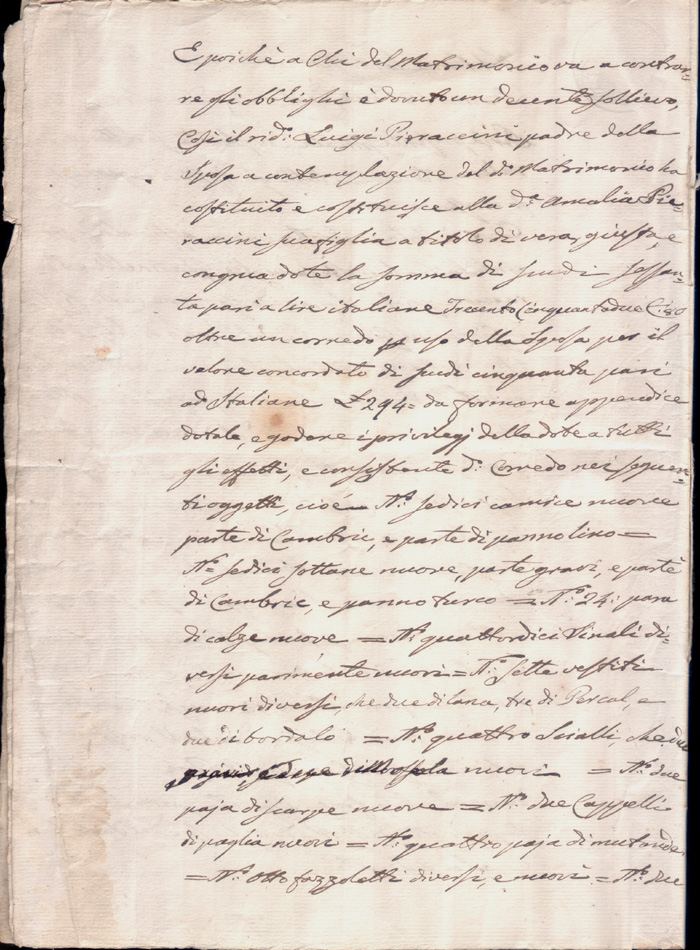 E poichè a Chi del Matrimonio va a contrar=
re gli obblighi è dovuto un decente sollievo,
Così il rid.º Luigi Pieraccini padre della
Sposa a contemplazione del d.º Matrimonio ha
costituito e costituisce alla d.ª Amalia Pie=
raccini sua figlia a titolo di vera, giusta, e
congrua dote la somma di scudi sessan=
ta pari a lire italiane Trecento Cinquantadue C. 80
oltre un corredo p uso della Sposa per il
valore concordato di scudi cinquanta pari
ad Italiane £ 294= da formare appendice
dotale, e godere i privilegj della dote a tutti
gli effetti, e consistente d.º Corredo nei seguen=
ti oggetti, cioè= N.º sedici camice nuove
parte di Cambric, e parte di panno lino=
N.º sedici sottane nuove, parte gravi, e parte
di Cambric, e panno turco = N.º 24: para
di calze nuove = N.º quattordici Sinali di=
versi parimente nuovi= N.º sette vestiti
nuovi diversi, che due di lana, tre di Percal, e
due di bordato = N.º quattro Scialli, che due
gravi e due di nuovi = N.º due
paja di scarpe nuove = N.º due Cappelli
di paglia nuovi = N.º quattro paja di mutande
= N.º Otto fazzoletti diversi, e nuovi = N.º due